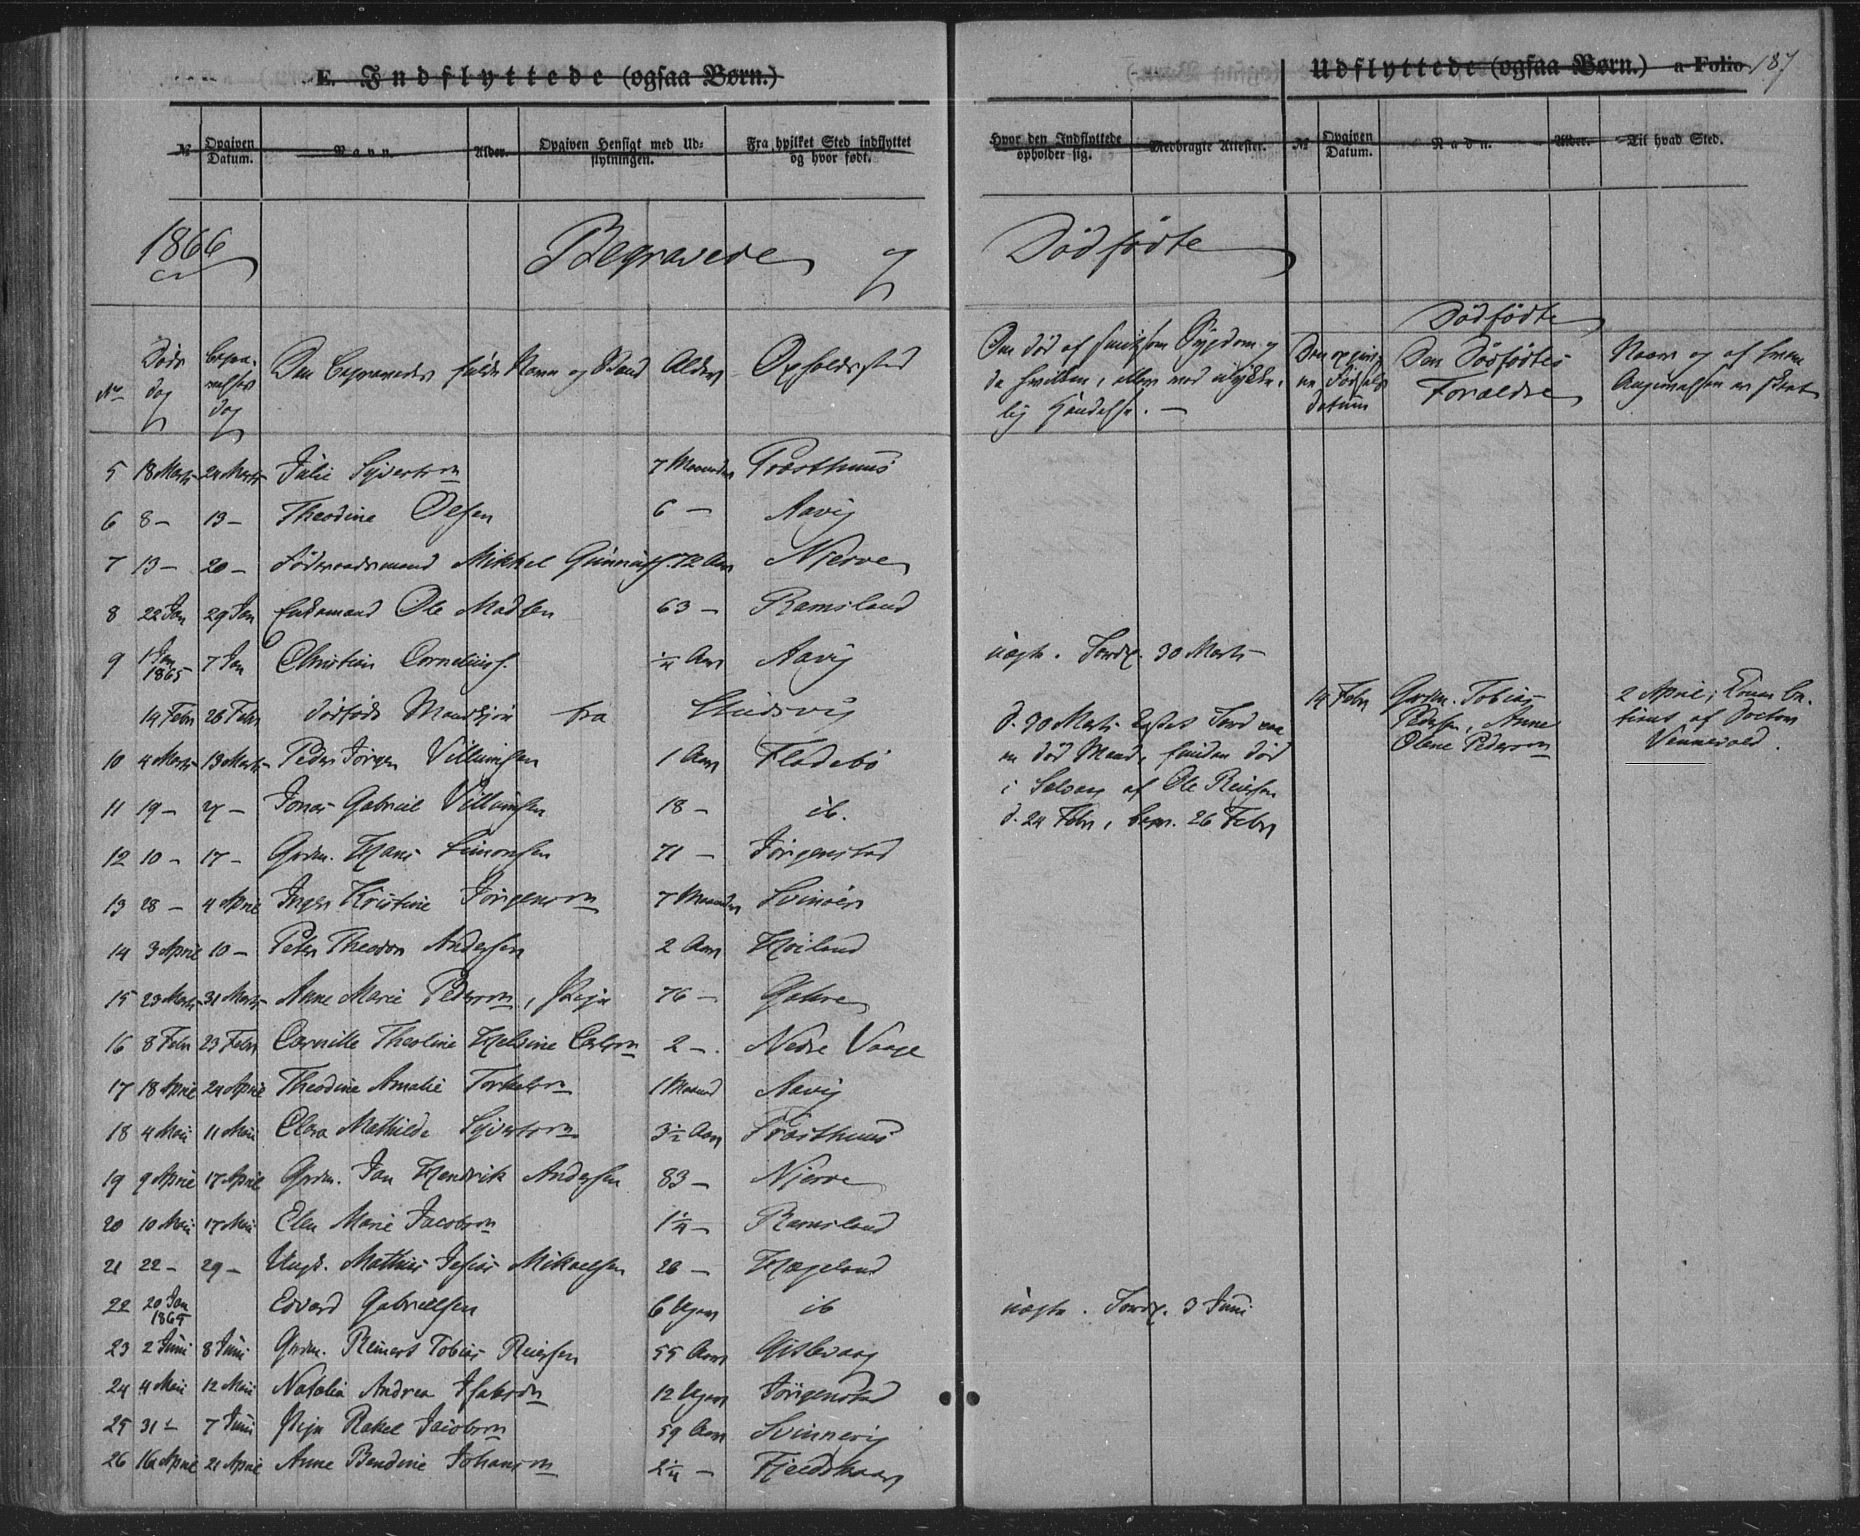 E. Indflyttede (ogsaa Børn.)
Udflyttede (ogsaa Børn.) a Folio 187
№ Opgiven Datum. Navn. Alder. Opgiven Hensigt med Udflytningen. Fra hvilket Sted indflyttet og hvor født.
Hvor den Indflyttede opholder sig. Medbragte Attester. № Opgiven Datum. Navn. Alder. Til hvad Sted.
1866 Begravede og Dødfødte
Dødfødte
No Døds dag Begravelses dag Den Begravedes fulde Navn og Stand Alder Opholdssted
Om død af smitsom Sygdom og da hvilken, eller ved ulykkelig Hændelse. —
Den opgivne Fødselsdatum Den Dødfødtes Forældre Naar og af hvem Angivelsen er skeet
5 18 Marts 24 Marts Julie Syvertsen 7 Maaneder Præsthuus
6 8 — 13 — Theodine Olsen 6 — Aavig
7 13 — 20 — Føderaadsmand Mikkel Gunnufs. 72 Aar Njerve
8 22 Jan 29 Jan Enkemand Ole Madsen 63 — Ramsland
9 1 Jan 1865 7 Jan Christian Corneliuss. ¼ Aar Aavig Jordf. 30 Marts
14 Febr 26 Febr dødfødt Mandkjøn fra
14 Febr Grdm. Tobias Pedersen, Anne Olene Pedersen
2 April; af Doctor Vennevold.
10 4 Marts 13 Marts Peder Jørgen Villumsen 1 Aar Fladebø
d. 30 Marts kastet Jord paa en død Mand, funden død i af Ole Reiersen d. 24 Febr, begr. 26 Febr
11 19 — 27 — Jonas Gabriel Villumsen 18 — ib.
12 10 — 17 — Grdm. Hans Simonsen 71 — Jørgenstad
13 28 — 4 April Inger Kristine Jørgensen 7 Maaneder Svinøer
14 3 April 10 — Peter Theodor Andersen 2 Aar Høiland
15 23 Marts 31 Marts Anne Marie Pedersen, Pige 76 — Gahre
16 8 Febr 23 Febr Theoline Helvine 2 — Nedre Vaage
17 18 April 24 April Theodine Amalie Torkelsen 1 Maaned Aavig
18 4 Mai 11 Mai Clara Mathilde Syvertsen 3½ Aar Præsthuus
19 9 April 17 April Grdm. Jan Hendrik Andersen 83 — Njerve
20 10 Mai 17 Mai Elen Marie Jacobsen 1¼ — Ramsland
21 22 — 29 — Ungk. Mathias Mikaelsen 26 — Hægeland
22 20 Jan 1865 Edvard Gabrielsen 6 Uger ib Jordf. 3 Juni
23 2 Juni 8 Juni Grdm. Reinert Tobias Reiersen 55 Aar Gislevaag
24 4 Mai 12 Mai Natalia Andrea Isaksen 12 Uger Jørgenstad
25 31 — 7 Juni Pige Rakel Jacobsen 59 Aar Svinnevig
26 16 April 21 April Anne Bendine Johansen 2¼ — Fjeldskaar